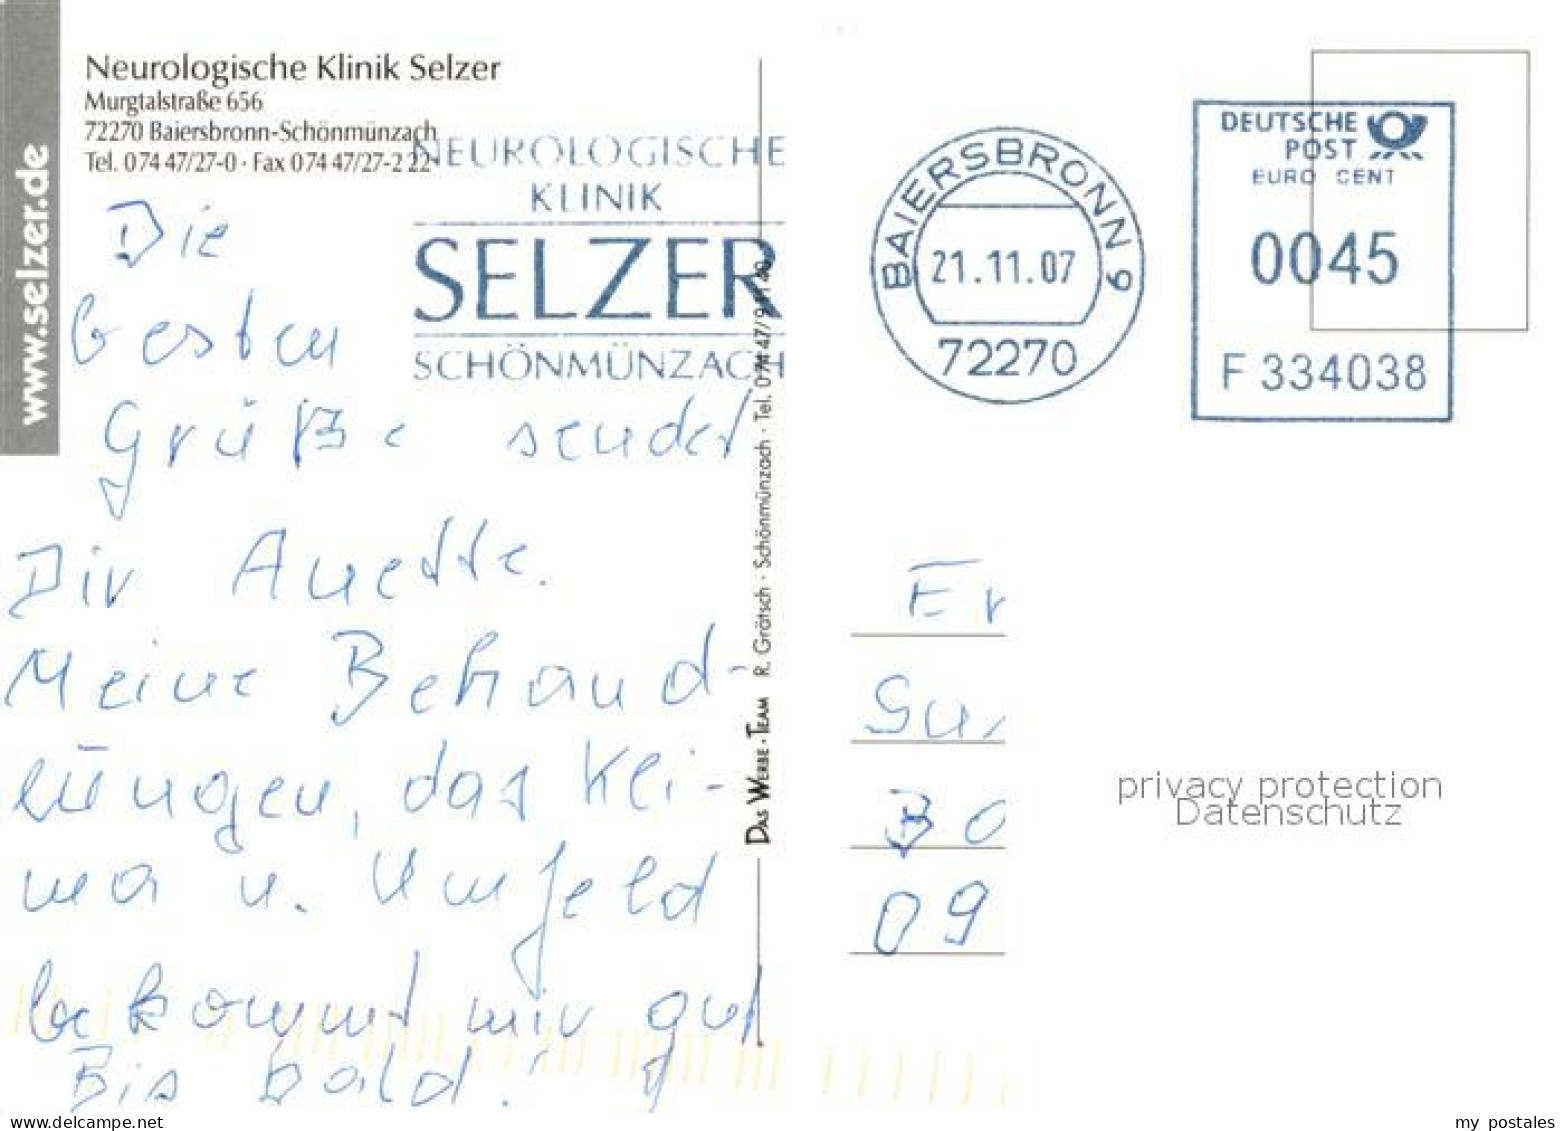 www.selzer.de
Neurologische Klinik Selzer
Murgtalstraße 656
72270 Baiersbronn-Schönmünzach
Tel. 0 74 47/27-0 · Fax 0 74 47/27-2 22
NEUROLOGISCHE
KLINIK
SELZER
SCHÖNMÜNZACH
BAIERSBRONN 9
21.11.07
72270
DEUTSCHE
POST
EURO CENT
0045
F 334038
Die
besten
Grüße sendet
Dir Anette.
Meine Behand-
lungen, das Kli-
ma u. Umfeld
bekommt mir gut
Bis bald!
DAS WERBE·TEAM R. Grätsch · Schönmünzach · Tel.
Er
Su
Bo
09
privacy protection
Datenschutz
www.delcampe.net
my_postales